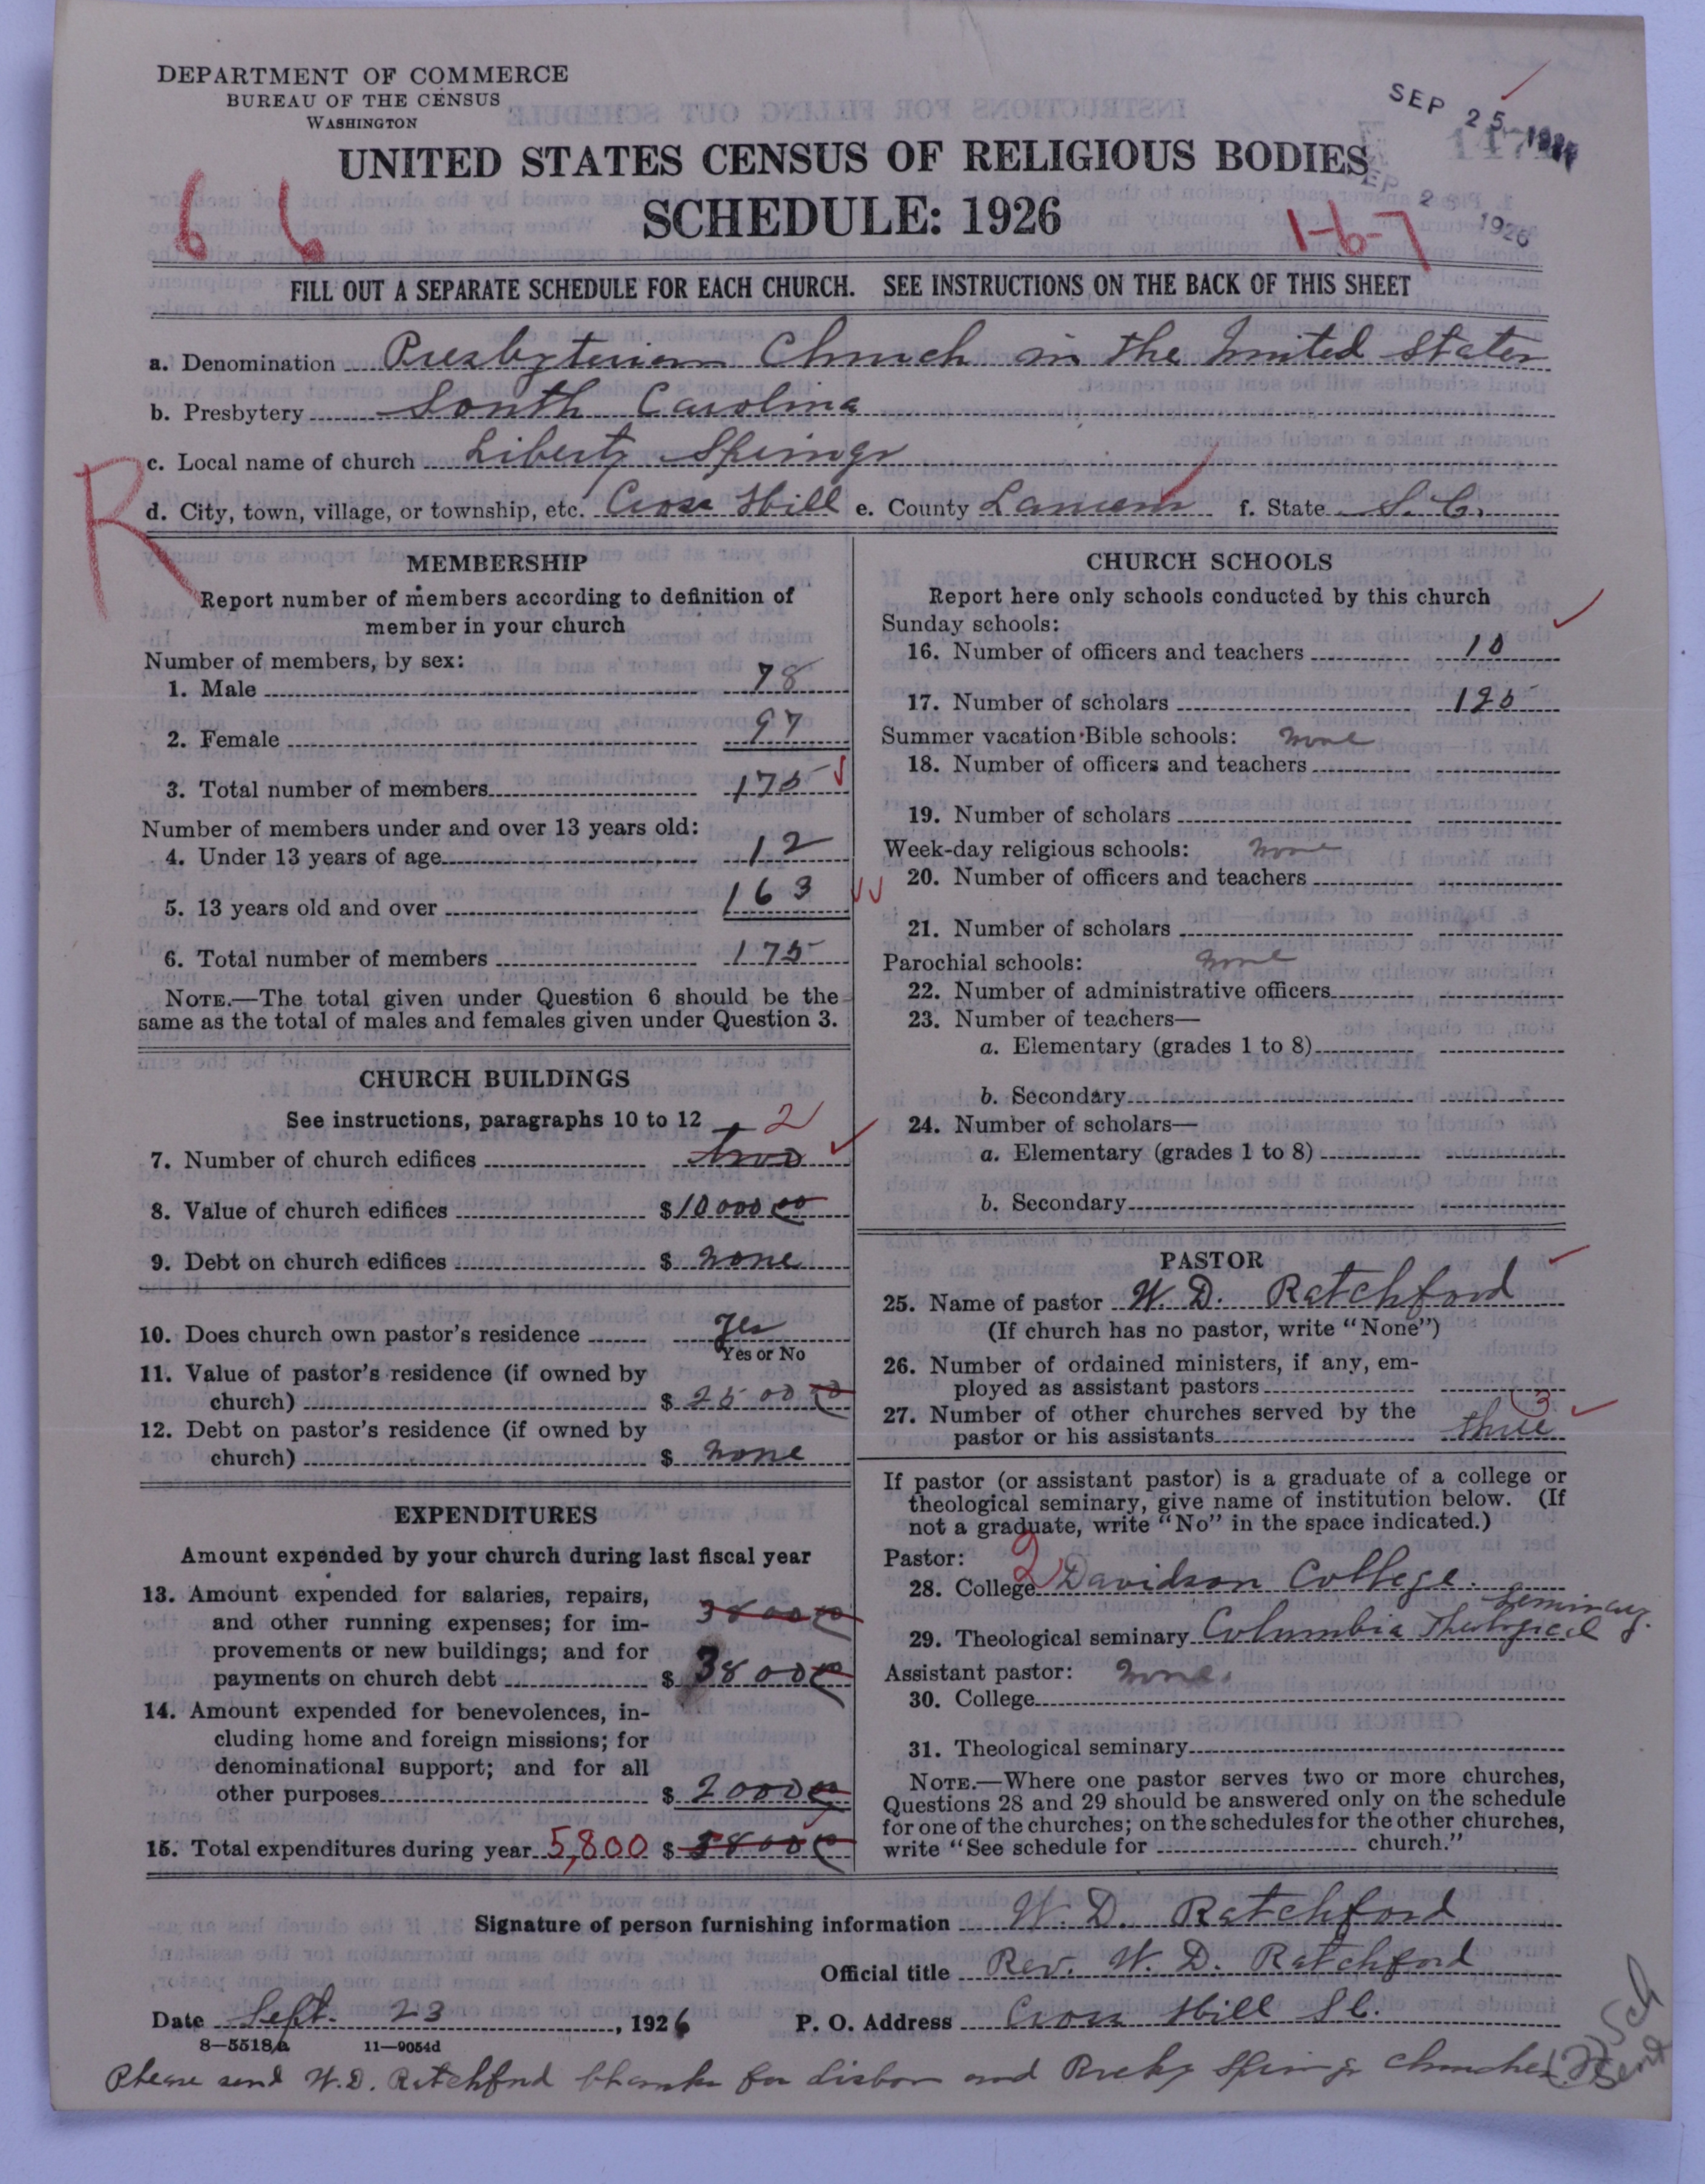 DEPARTMENT OF COMMERCE
BUREAU OF THE CENSUS
WASHINGTON
SEP 25 1926
SEP 28 1926
UNITED STATES CENSUS OF RELIGIOUS BODIES
SCHEDULE: 1926
6 6
1-6-7
FILL OUT A SEPARATE SCHEDULE FOR EACH CHURCH. SEE INSTRUCTIONS ON THE BACK OF THIS SHEET
a. Denomination Presbyterian Church in the United States
b. Presbytery South Carolina
c. Local name of church Liberty Springs
R
d. City, town, village, or township, etc. Cross Hill e. County Laurens f. State S. C.
MEMBERSHIP
Report number of members according to definition of
member in your church
Number of members, by sex:
1. Male 78
2. Female 97
3. Total number of members 175
Number of members under and over 13 years old:
4. Under 13 years of age 12
5. 13 years old and over 163
6. Total number of members 175
NOTE.—The total given under Question 6 should be the
same as the total of males and females given under Question 3.
CHURCH BUILDINGS
See instructions, paragraphs 10 to 12
2
7. Number of church edifices two
8. Value of church edifices $10000 00
9. Debt on church edifices $ none
10. Does church own pastor's residence yes
Yes or No
11. Value of pastor's residence (if owned by
church) $ 2500 00
12. Debt on pastor's residence (if owned by
church) $ none
EXPENDITURES
Amount expended by your church during last fiscal year
13. Amount expended for salaries, repairs,
and other running expenses; for im-
provements or new buildings; and for
payments on church debt $ 3800 00
3800 00
14. Amount expended for benevolences, in-
cluding home and foreign missions; for
denominational support; and for all
other purposes $ 2000 00
15. Total expenditures during year 5,800 $ 5800 00
CHURCH SCHOOLS
Report here only schools conducted by this church
Sunday schools:
16. Number of officers and teachers 10
17. Number of scholars 125
Summer vacation Bible schools: none
18. Number of officers and teachers
19. Number of scholars
Week-day religious schools: none
20. Number of officers and teachers
21. Number of scholars
Parochial schools: none
22. Number of administrative officers
23. Number of teachers—
a. Elementary (grades 1 to 8)
b. Secondary
24. Number of scholars—
a. Elementary (grades 1 to 8)
b. Secondary
PASTOR
25. Name of pastor W. D. Ratchford
(If church has no pastor, write "None")
26. Number of ordained ministers, if any, em-
ployed as assistant pastors
27. Number of other churches served by the
pastor or his assistants three
3
If pastor (or assistant pastor) is a graduate of a college or
theological seminary, give name of institution below. (If
not a graduate, write "No" in the space indicated.)
Pastor: 2
28. College Davidson College.
29. Theological seminary Columbia Theological Seminary.
Assistant pastor: none.
30. College
31. Theological seminary
NOTE.—Where one pastor serves two or more churches,
Questions 28 and 29 should be answered only on the schedule
for one of the churches; on the schedules for the other churches,
write "See schedule for church."
Signature of person furnishing information W. D. Ratchford
Official title Rev. W. D. Ratchford
Date Sept. 23, 1926 P. O. Address Cross Hill S.C.
8—5518a 11—9054d
Please send W. D. Ratchford blanks for Lisbon and Rocky Springs churches
2 Sch Sent